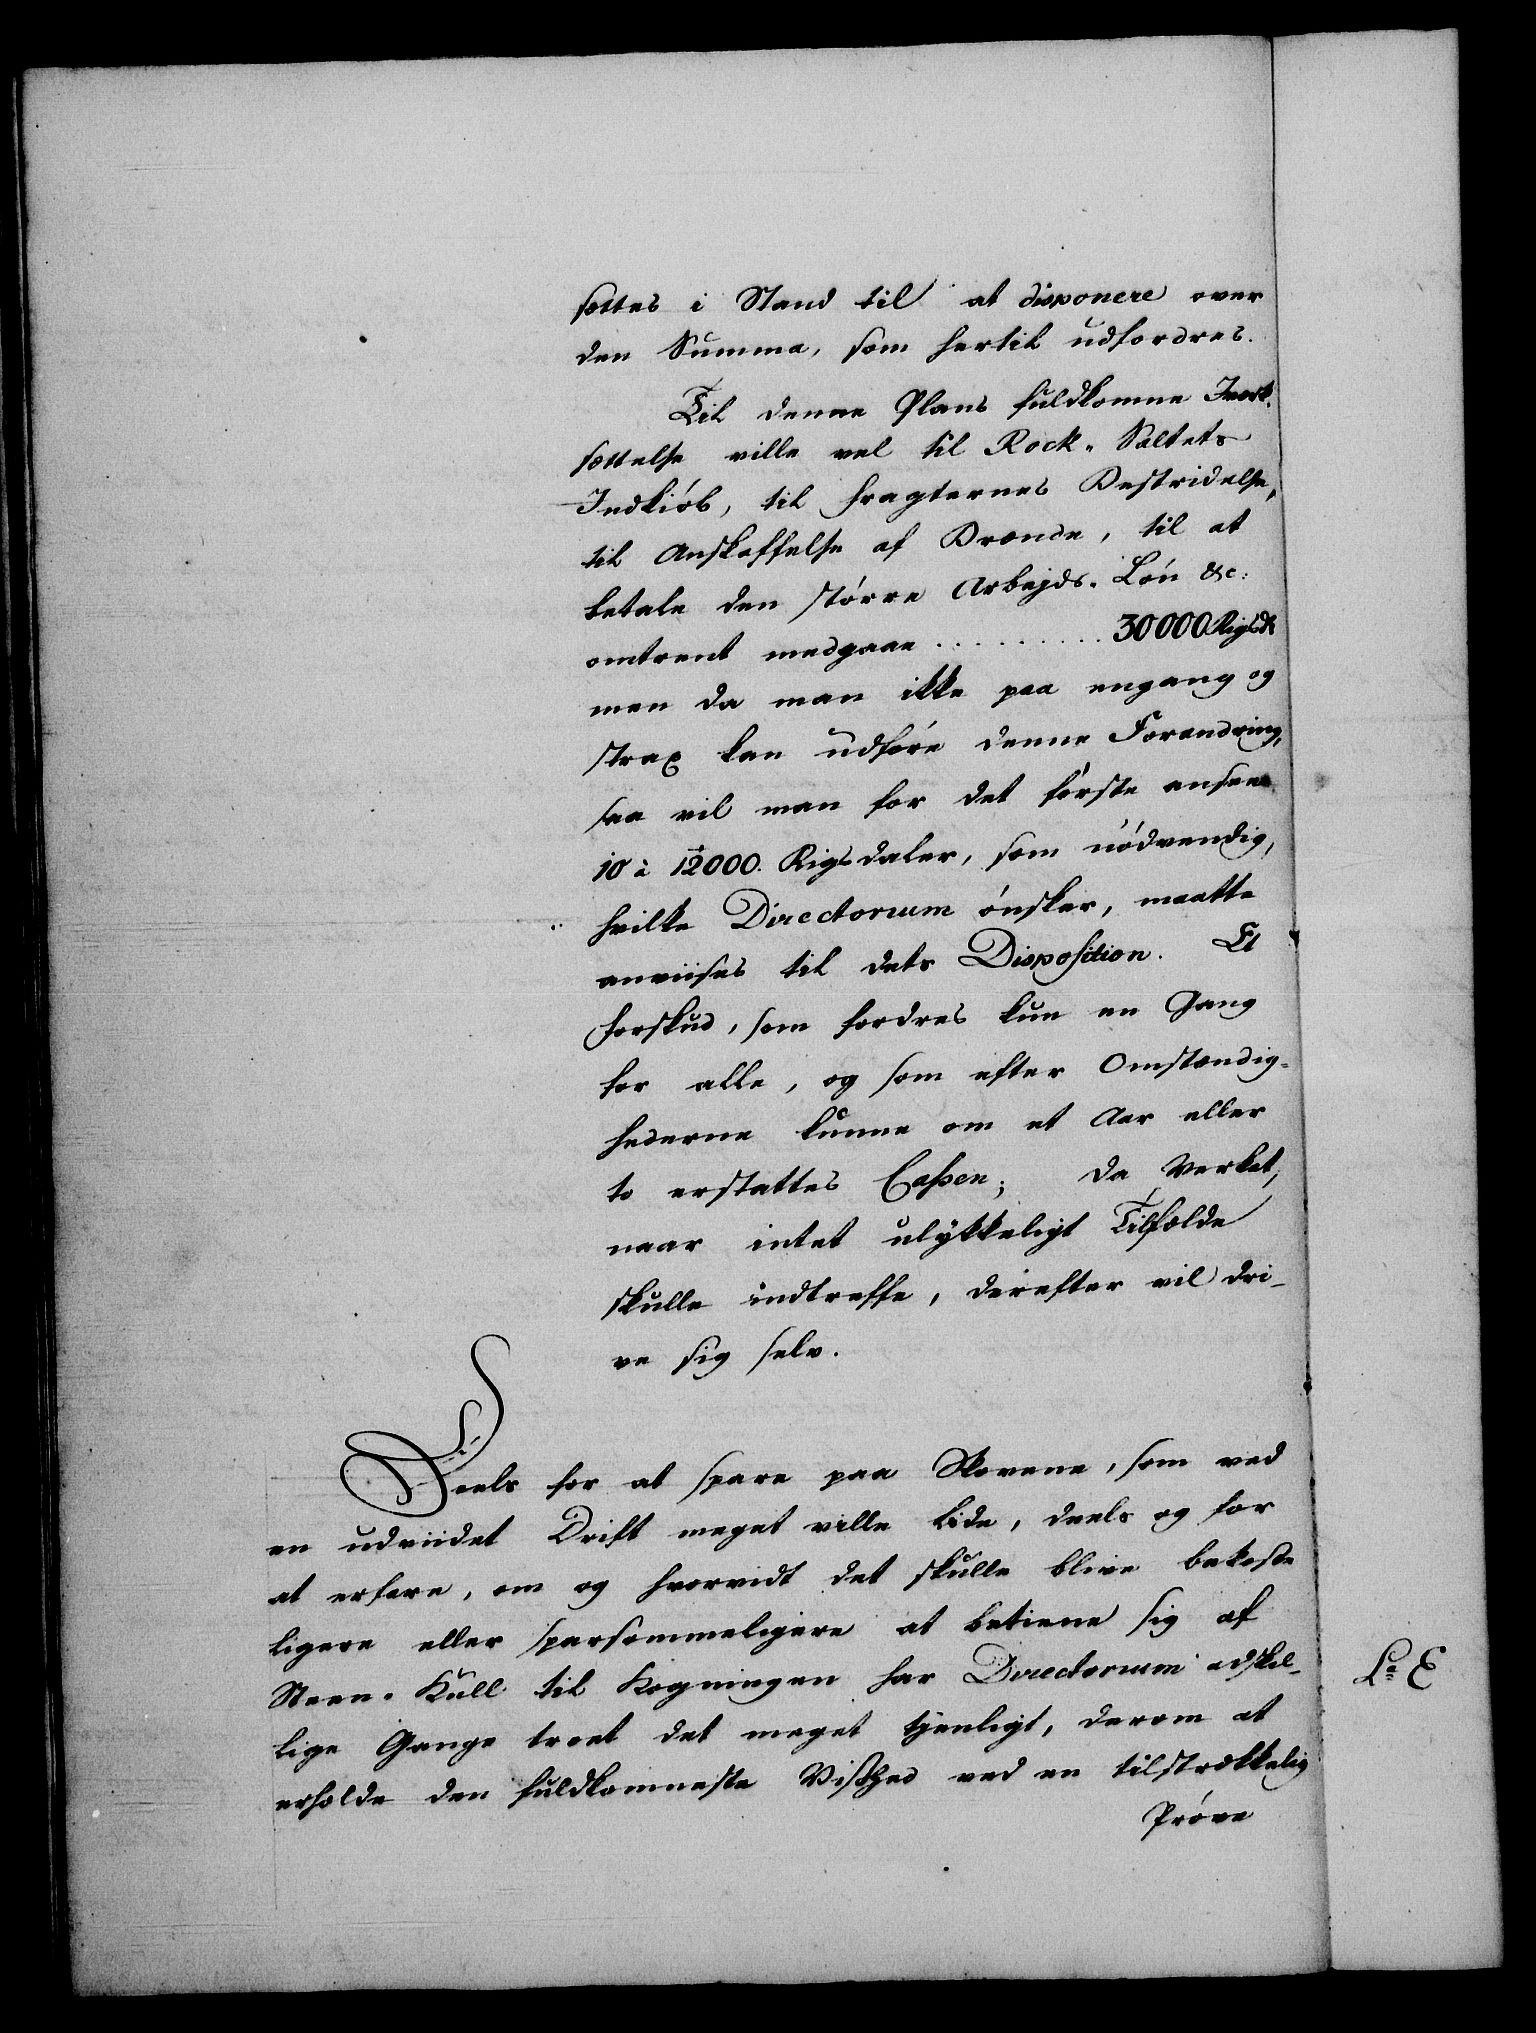 settes i Stand til at disponere over
den Summa, som hertil udfordres.
Til denne Plans fuldkomne Iverk-
settelse ville vel til Rock-Saltets
Indkiøb, til fragternes Bestridelse,
til Anskaffelse af Brænde, til at
betale den større Arbejds-Løn &c:
omtrent medgaae .......... 30000 Rigsdr
men da man ikke paa engang og
strax kan udføre denne Forandring,
saa vil man for det første ansee
10 à 12000. Rigsdaler, som nødvendig,
hvilke Directorium ønsker, maatte
anviises til dets Disposition. Et
forskud, som fordres kun en Gang
for alle, og som efter Omstændig-
hederne kunne om et Aar eller
to erstattes Cassen; da Verket,
naar intet ulykkeligt Tilfælde
skulle indtreffe, derefter vil dri-
ve sig selv.
Deels for at spare paa Skovene, som ved
en udviidet Drift meget ville lide, deels og for
at erfare, om og hvorvidt det skulle blive bekoste
ligere eller sparsommeligere at betiene sig af
Steen-Kull til Kogningen har Directorium adskil-
lige Gange troet det meget tjenligt, derom at
erholde den fuldkomneste Vished ved en tilstrækkelig
Prøve
La E